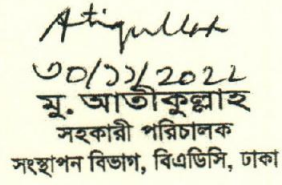 Atiqullah
৩০/১১/2022
মু. আতীকুল্লাহ
সহকারী পরিচালক
সংস্থাপন বিভাগ, বিএডিসি, ঢাকা